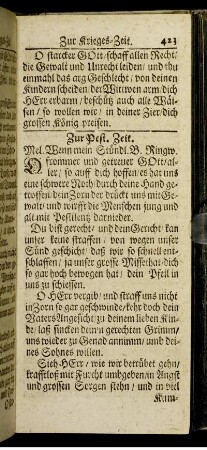 Zur Krieges-Zeit. 423
O starcker GOtt/schaff allen Recht/
die Gewalt und Unrecht leiden/ und thu
einmahl das arg Geschlecht/ von deinen
Kindern scheiden der Witwen arm/dich
HErr erbarm/ beschütz auch alle Wäi-
sen/ so wollen wir/ in deiner Zier/dich
grossen König preisen.
Zur Pest. Zeit.
Mel. Wenn mein Stündl. B. Ringw.
O frommer und getreuer GOtt/al-
ler/ so auff dich hoffen/ es hat uns
eine schwere Noth durch deine Hand ge-
troffen/dein Zorn der drückt uns mit Ge-
walt und wörfft die Menschen jung und
alt mit Pestilentz darnieder.
Du bist gerecht/ und dein Gericht kan
unser keine straffen/ von wegen unser
Sünd geschicht/ daß wir so schnell ent-
schlaffen/ ja unser grosse Missethat/dich
so gar hoch bewogen hat/ dein Pfeil in
uns zu schiessen.
O HErr vergib/ und straff uns nicht
in Zorn so gar geschwinde/kehr doch dein
Vaters Angesicht zu deinem lieben Kin-
de/ laß sincken dein'n gerechten Grimm/
uns wieder zu Genad annimm/ umb dei-
nes Sohnes willen.
Sieh HErr/ wie wir betrübet gehn/
krafftloß mit Furcht umbgeben/in Angst
und grossen Sorgen stehn/ und in viel
Kum-